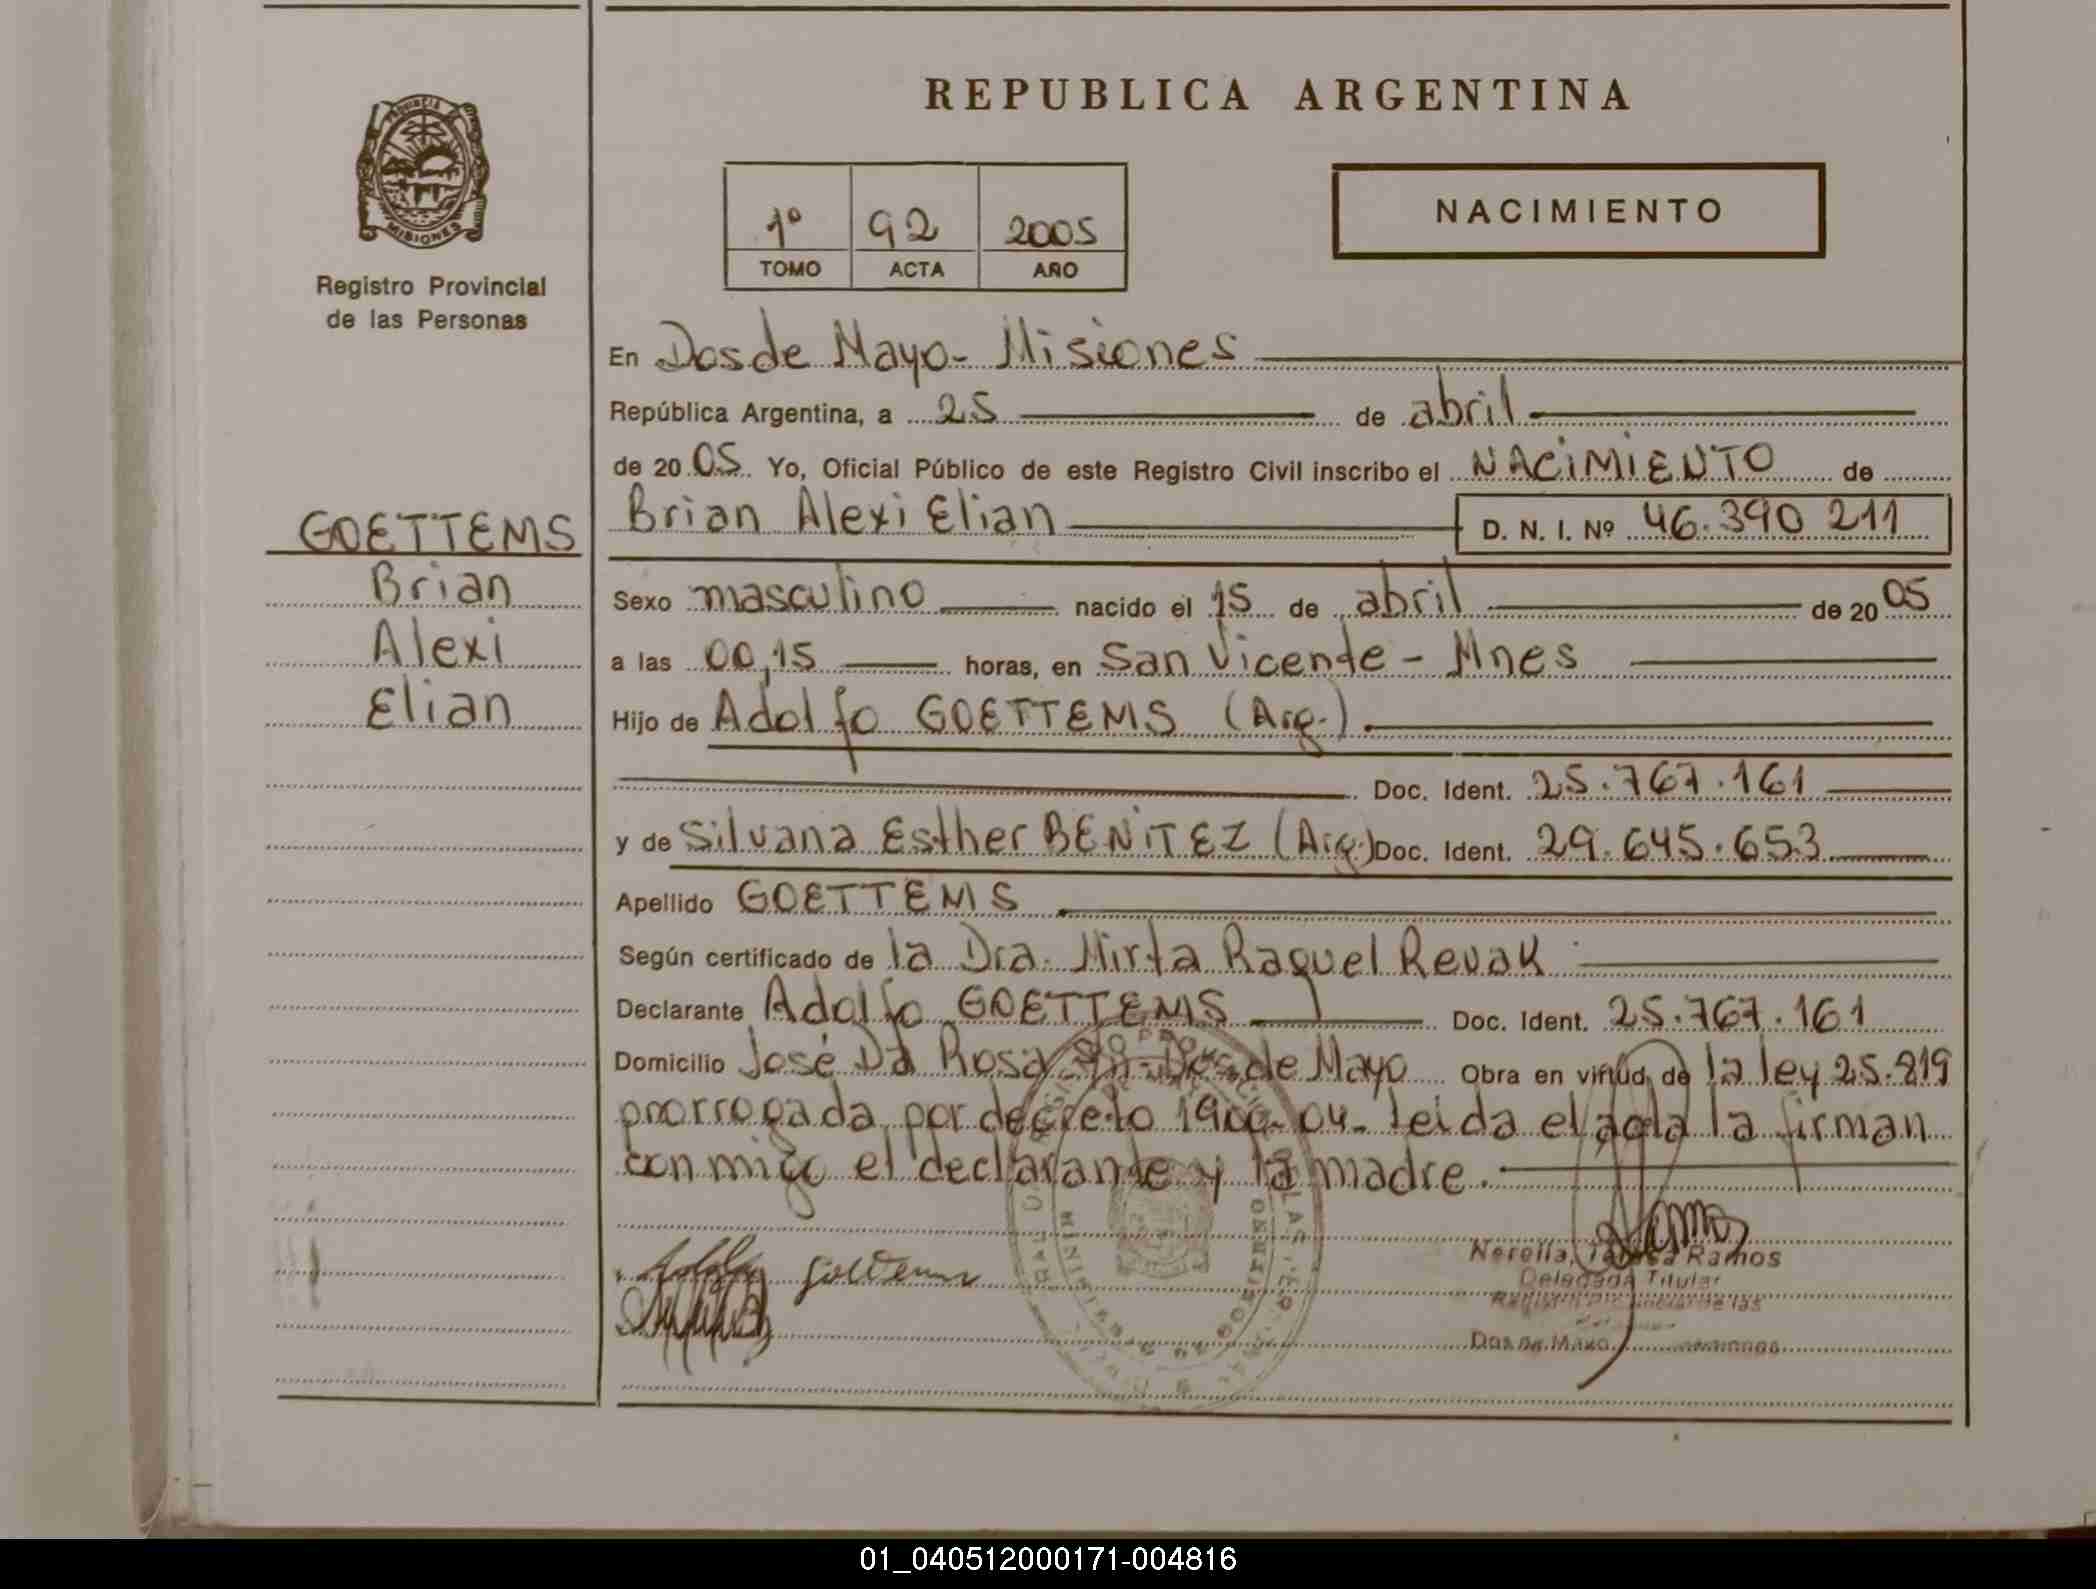 REPUBLICA ARGENTINA
PROVINCIA
MISIONES
Registro Provincial
de las Personas
1º 92 2005
TOMO ACTA AÑO
NACIMIENTO
En Dos de Mayo - Misiones
República Argentina, a 25 de abril
de 20 05 Yo, Oficial Público de este Registro Civil inscribo el NACIMIENTO de
Brian Alexi Elian D. N. I. Nº 46.390 211
GOETTEMS
Brian
Alexi
Elian
Sexo masculino nacido el 15 de abril de 20 05
a las 00,15 horas, en San Vicente - Mnes
Hijo de Adolfo GOETTEMS (Arg.)
Doc. Ident. 25.767.161
y de Silvana Esther BENITEZ (Arg.) Doc. Ident. 29.645.653
Apellido GOETTEMS
Según certificado de la Dra. Mirta Raquel Revak
Declarante Adolfo GOETTEMS Doc. Ident. 25.767.161
Domicilio José Da Rosa Dos de Mayo Obra en virtud de la ley 25.819
prorrogada por decreto 1900-04. leida el acta la firman
conmigo el declarante y la madre.
Adolfo Goettems
Ramos
Delegada Titular
Dos de Mayo Misiones
01_040512000171-004816